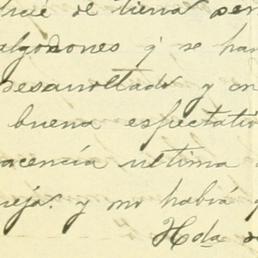 de tierra
algodones q' se han
desarrollado y en
buena espectativ
acencia ultima
y no habrá q
Hda